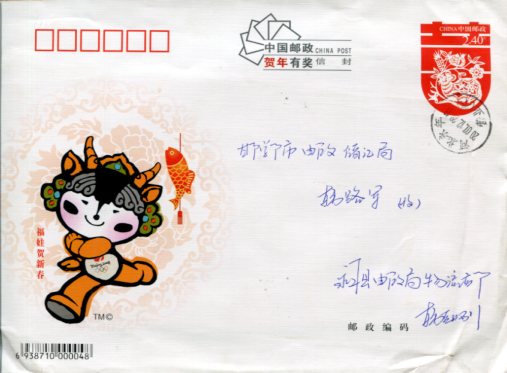 中国邮政 CHINA POST
贺年有奖 信封
CHINA 中国邮政
2.40元
邯郸市邮政储汇局
韩路军 收
福娃贺新春
Beijing
TM©
邮政编码
6 938710 000048